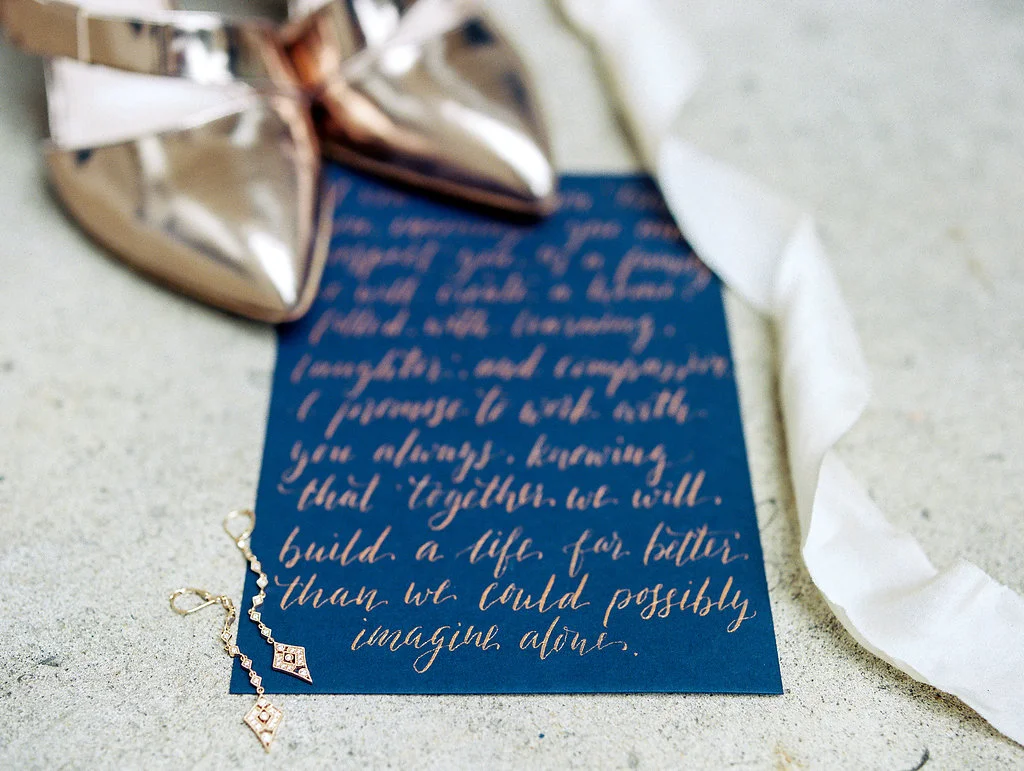 respect you, as a family
I will create a home
filled with learning,
laughter, and compassion
I promise to work with
you always, knowing
that together we will
build a life far better
than we could possibly
imagine alone.